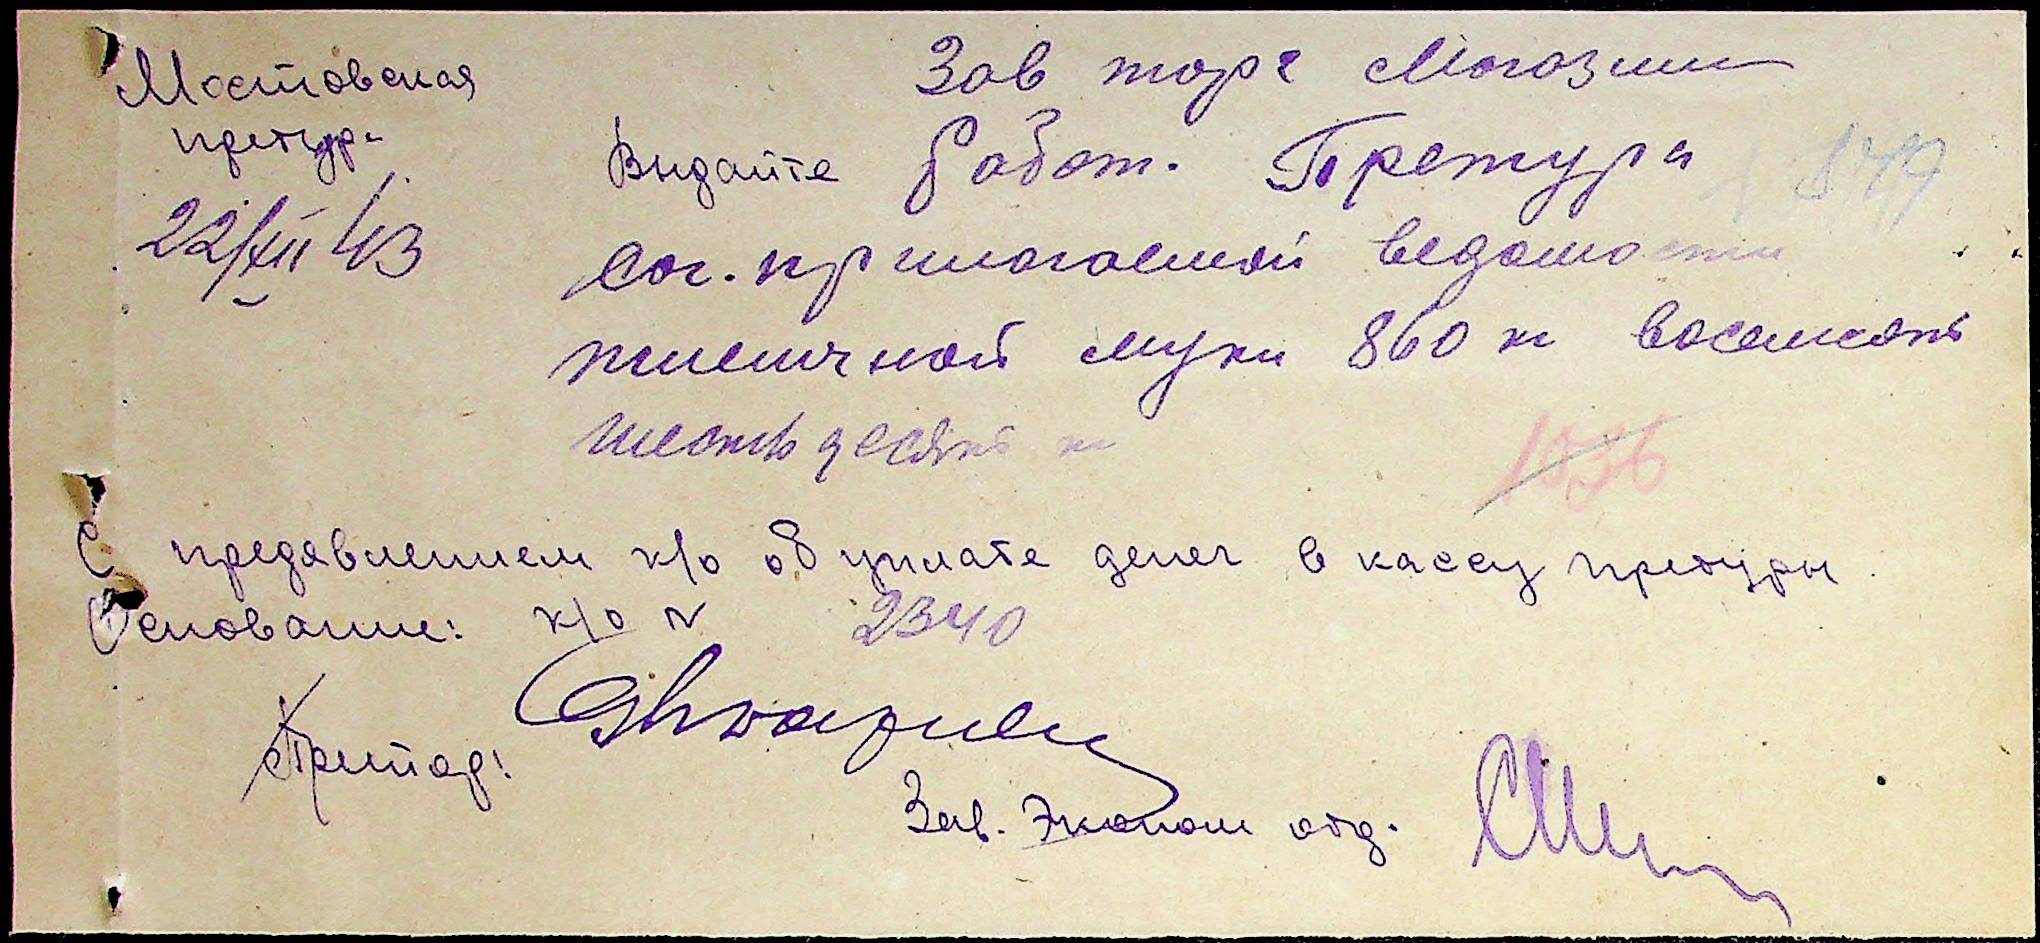 Мостовская
претура
22/XII 43
Зав торг Могозином
Выдайте работ. Претура
сог. прилогоемой ведомости
пшеничной муки 860 кг восемсот
шестьдесят кг
1036
С предявлением к/о об уплате денег в кассу претуры
Основание: к/о N 2340
Претор:
Зав. Эконом отд.